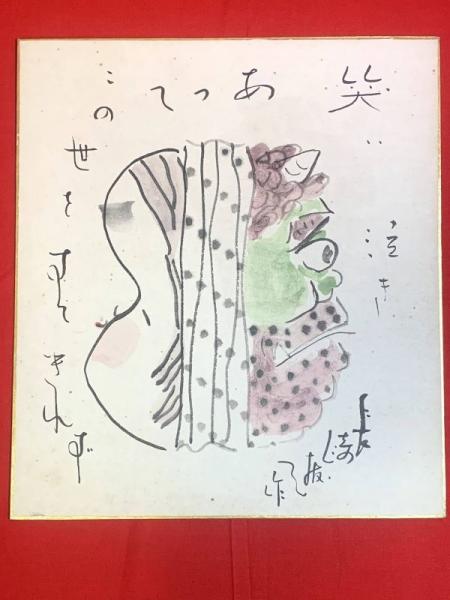 笑い
泣き
あって
この世をすてきれず